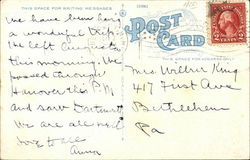 THIS SPACE FOR WRITING MESSAGES
POST CARD
THIS SPACE FOR ADDRESS ONLY
We have been having
a wonderful trip.
We left Augusta
this morning. We
passed through
Hanover this P.M.
and saw Dartmouth
We are all well
Love to all
Anna
Mrs. Wilbur King
417 First Ave
Bethlehem
Pa